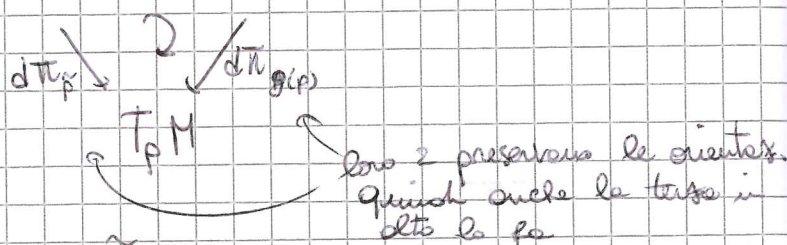 dπ_p̃ dπ_g(p)
T_pM
loro 2 preservano le orientaz.
quindi anche la terza in
alto lo fa